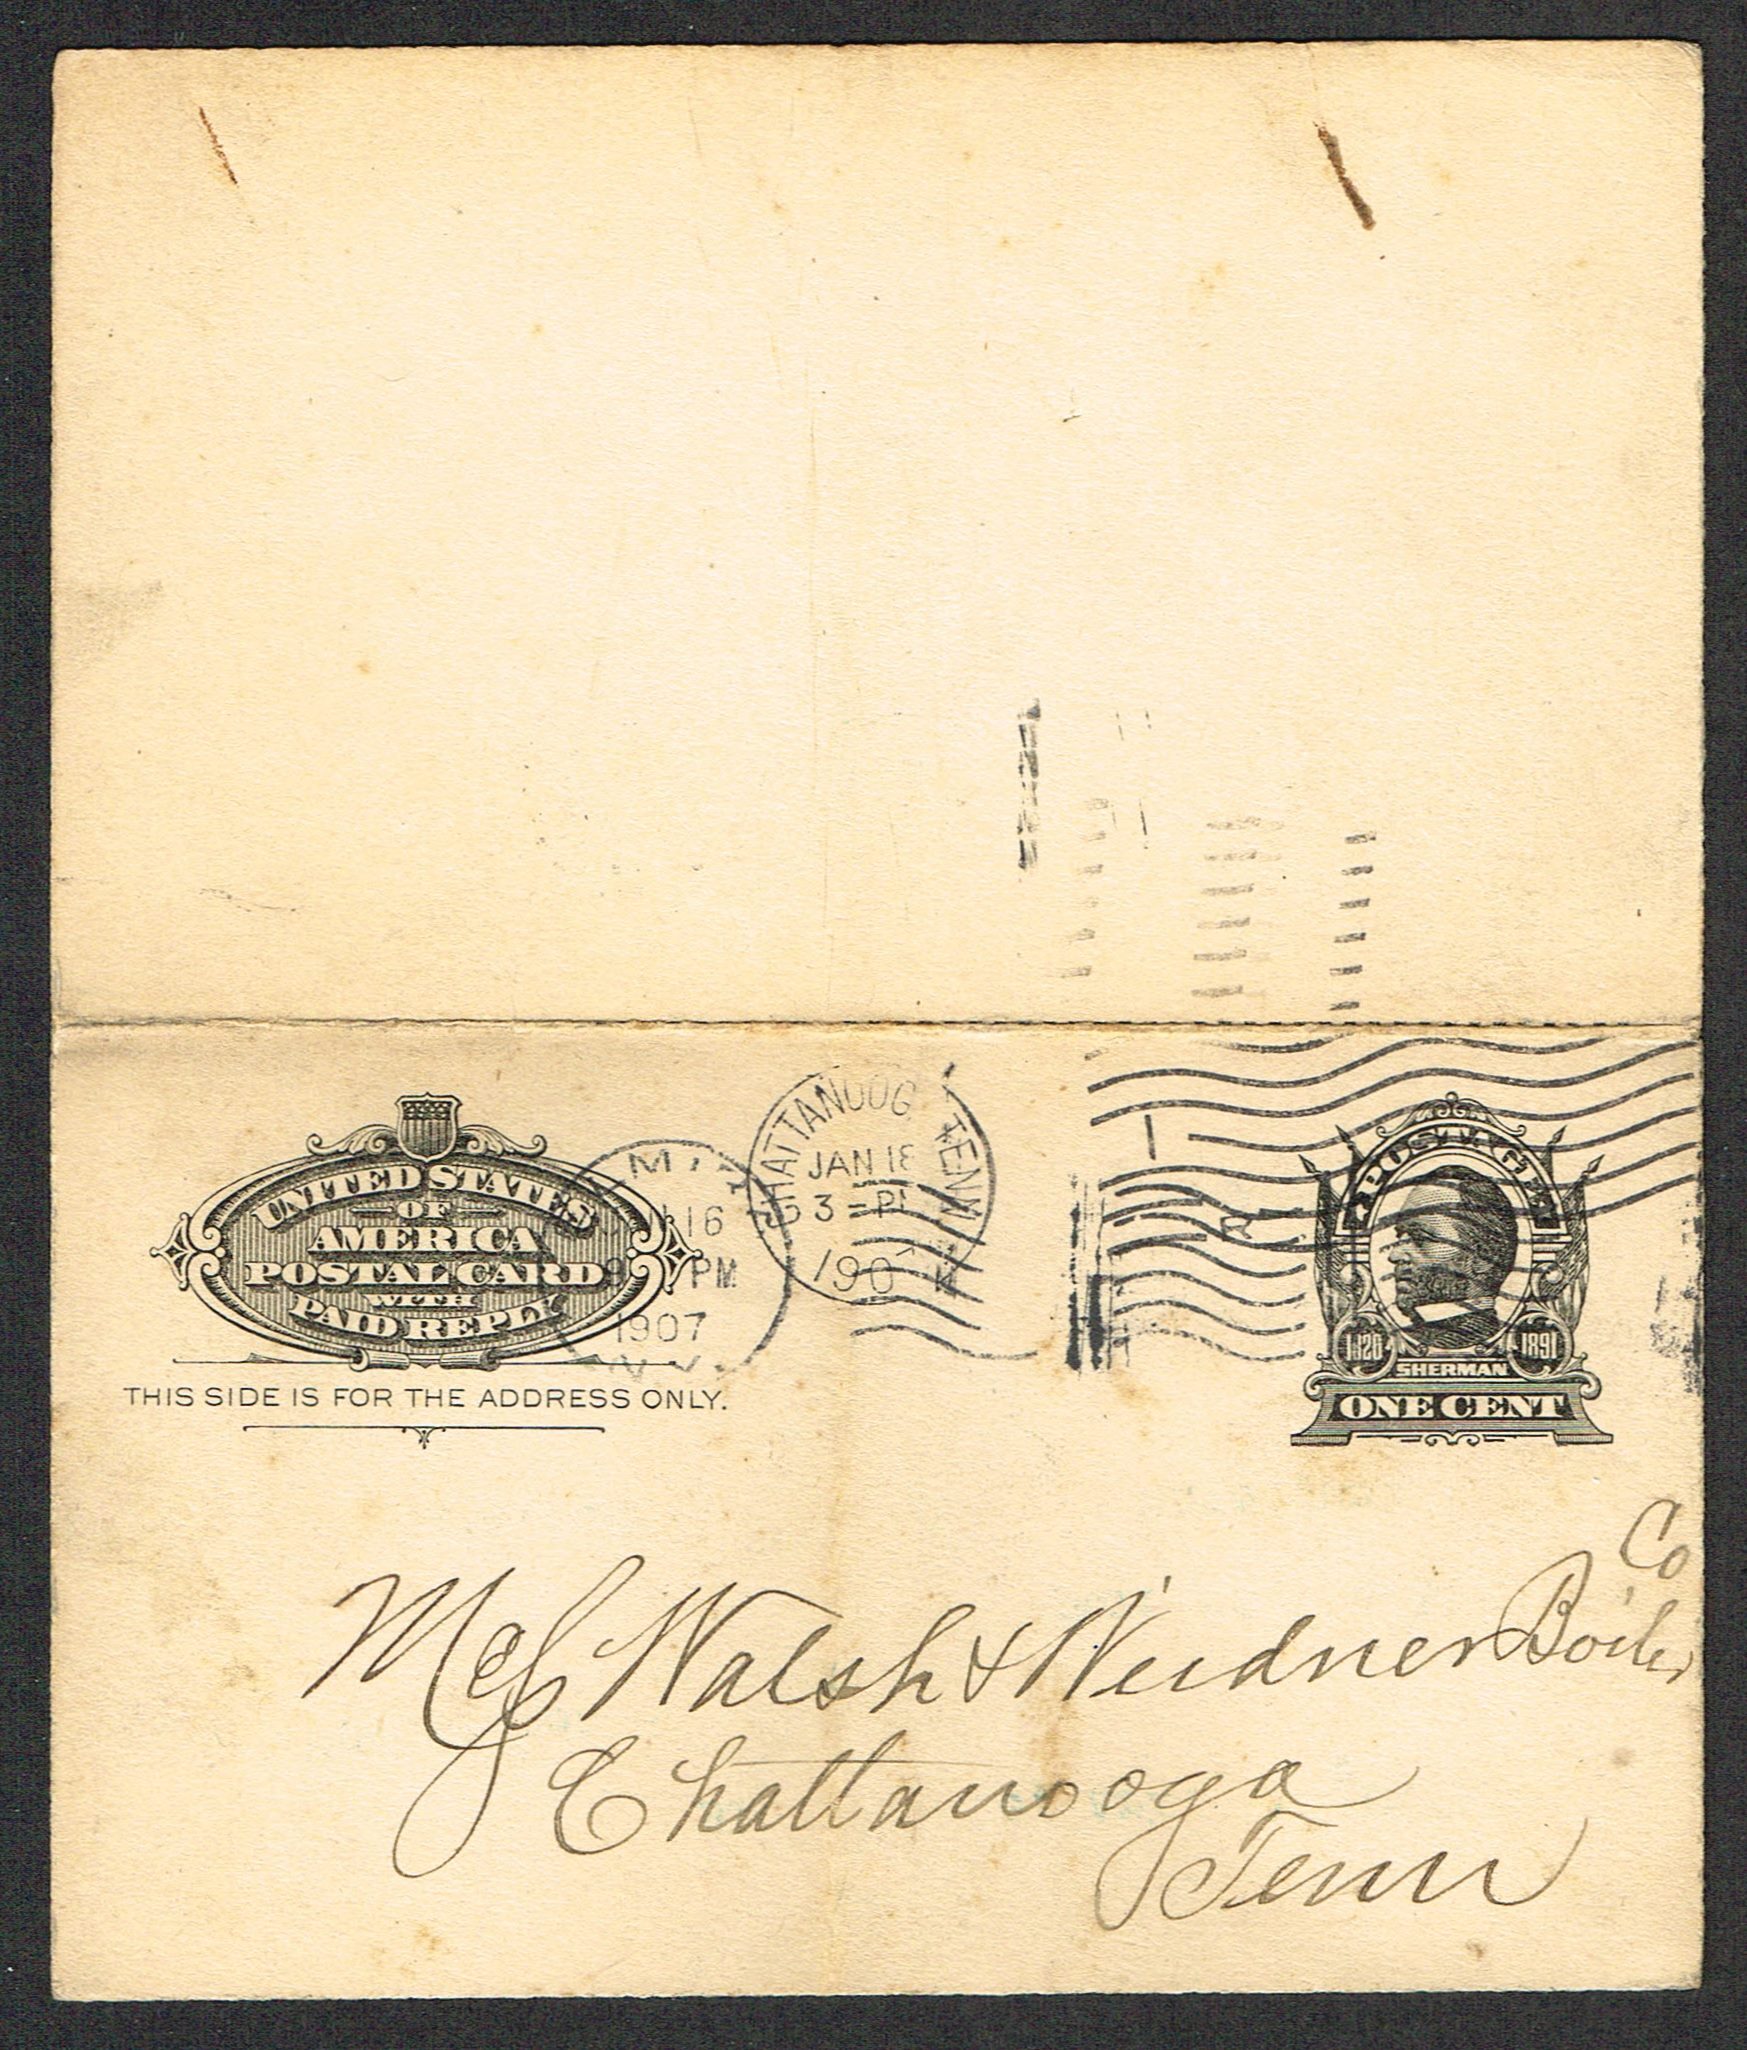 UNITED STATES
OF
AMERICA
POSTAL CARD
WITH
PAID REPLY
THIS SIDE IS FOR THE ADDRESS ONLY.
16
PM
1907
N.Y.
CHATTANOOG TENN
JAN 18
3-P
190
POSTAGE
1820 1891
SHERMAN
ONE CENT
Co
Walsh & Weidner Boiler
Chattanooga
Tenn